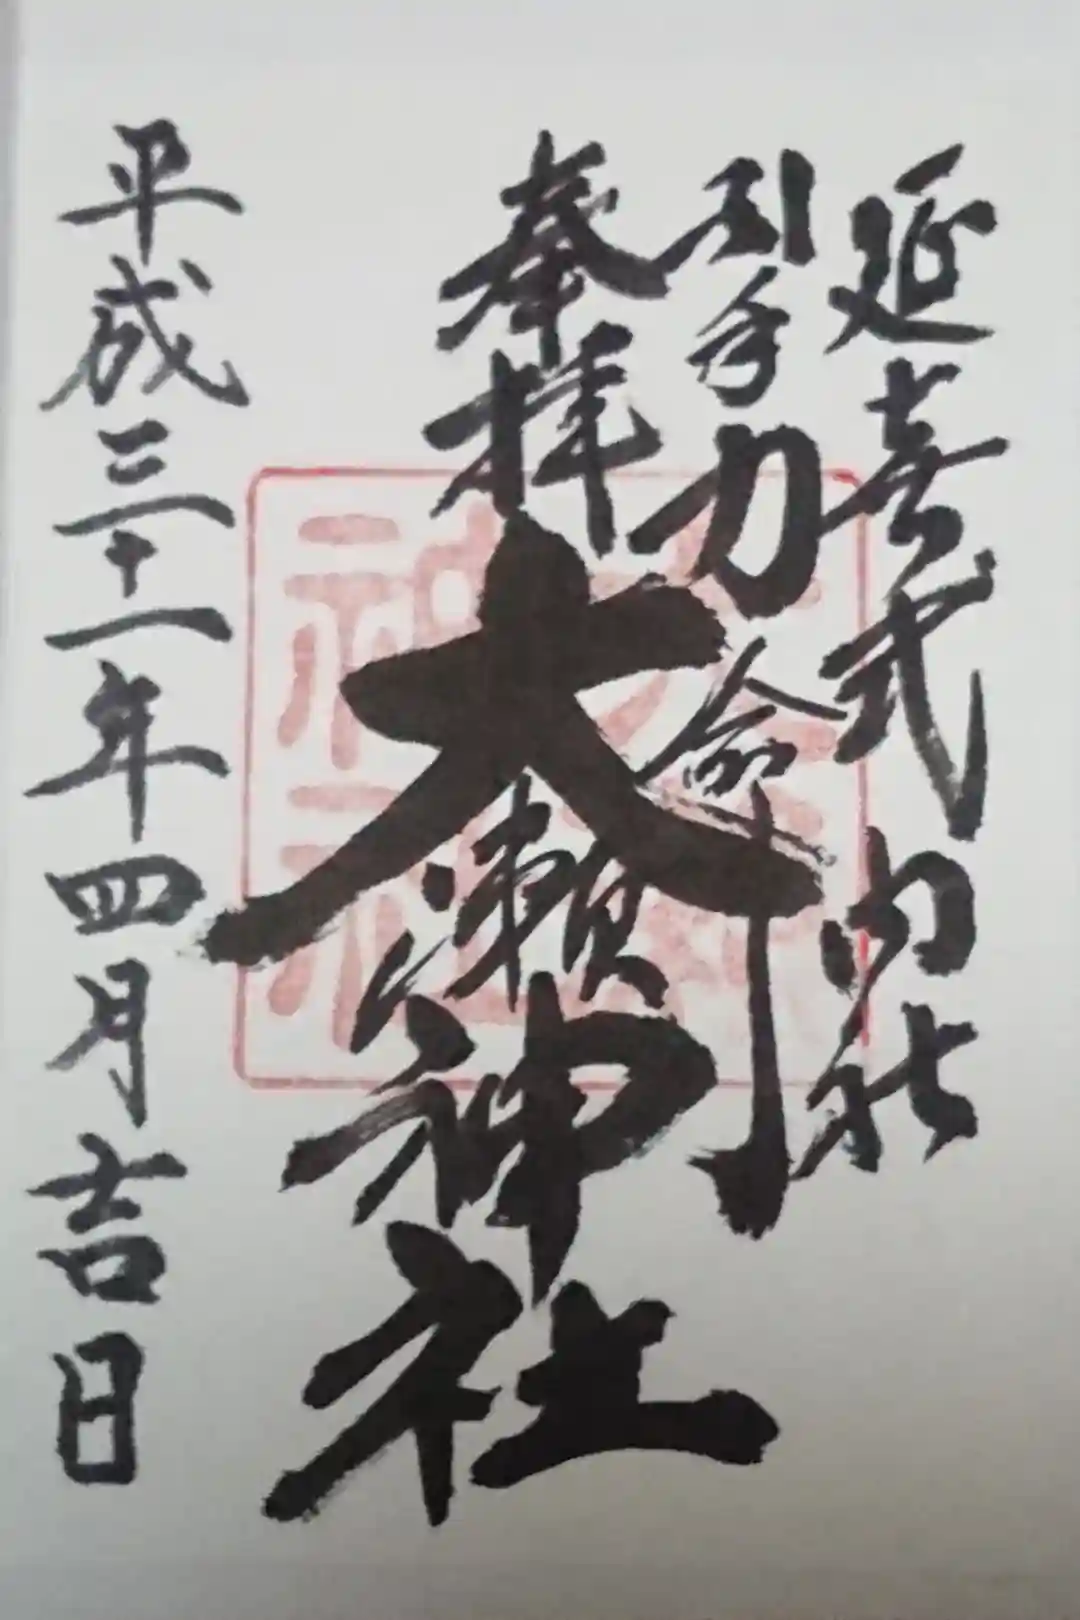 延喜式内社
引手力命
奉拝
大瀬神社
平成三十一年四月吉日
大瀬神社